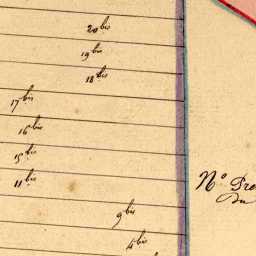 20 bis
19 bis
18 bis
17 bis
16 bis
15 bis
11 bis
N°
9 bis
4 bis